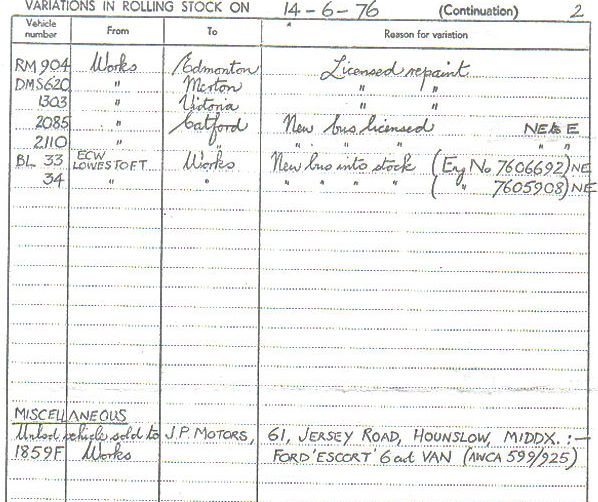 VARIATIONS IN ROLLING STOCK ON 14-6-76 (Continuation) 2
Vehicle number From To Reason for variation
RM 904 Works Edmonton Licensed repaint
DMS 620 " Merton " "
1303 " Victoria " "
2085 " Catford New bus licensed NE to E
2110 " " " " " " "
BL 33 ECW LOWESTOFT Works New bus into stock (Eng No 7606692) NE
34 " " " " " " ( " 7605908) NE
MISCELLANEOUS
Unlsd vehicle sold to J.P. MOTORS, 61, JERSEY ROAD, HOUNSLOW, MIDDX. :-
1859F Works FORD 'ESCORT' 6 cwt VAN (AWCA 599/925)